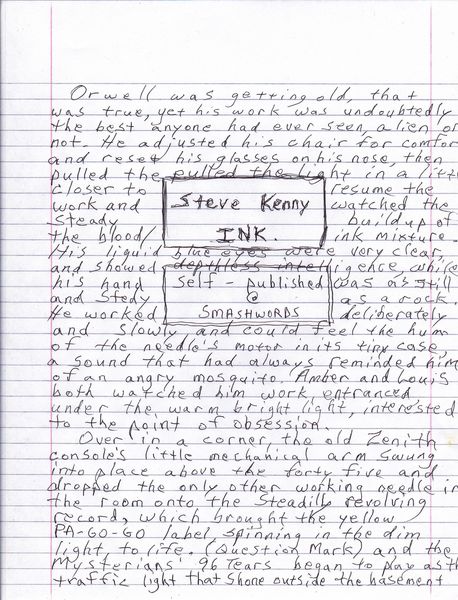 Orwell was getting old, that
was true, yet his work was undoubtedly
the best anyone had ever seen, alien or
not. He adjusted his chair for comfor
and reset his glasses on his nose, then
pulled the pulled the light in a litt
closer to resume the
work and watched the
steady buildup of
the blood/ ink mixture.
Steve Kenny
INK.
His liquid blue eyes were very clear,
and showed depthless intelligence, while
his hand was as still
and stedy as a rock.
He worked deliberately
Self-published
@
SMASHWORDS
and slowly and could feel the hum
of the needle's motor in its tiny case,
a sound that had always reminded him
of an angry mosquito. Amber and Louis
both watched him work entranced
under the warm bright light, interested
to the point of obsession.
Over in a corner, the old Zenith
console's little mechanical arm swung
into place above the forty five and
dropped the only other working needle in
the room onto the steadily revolving
record, which brought the yellow
PA-GO-GO label spinning in the dim
light to life. (Question Mark) and the
Mysterians' 96 Tears began to play as th
traffic light that shone outside the basement